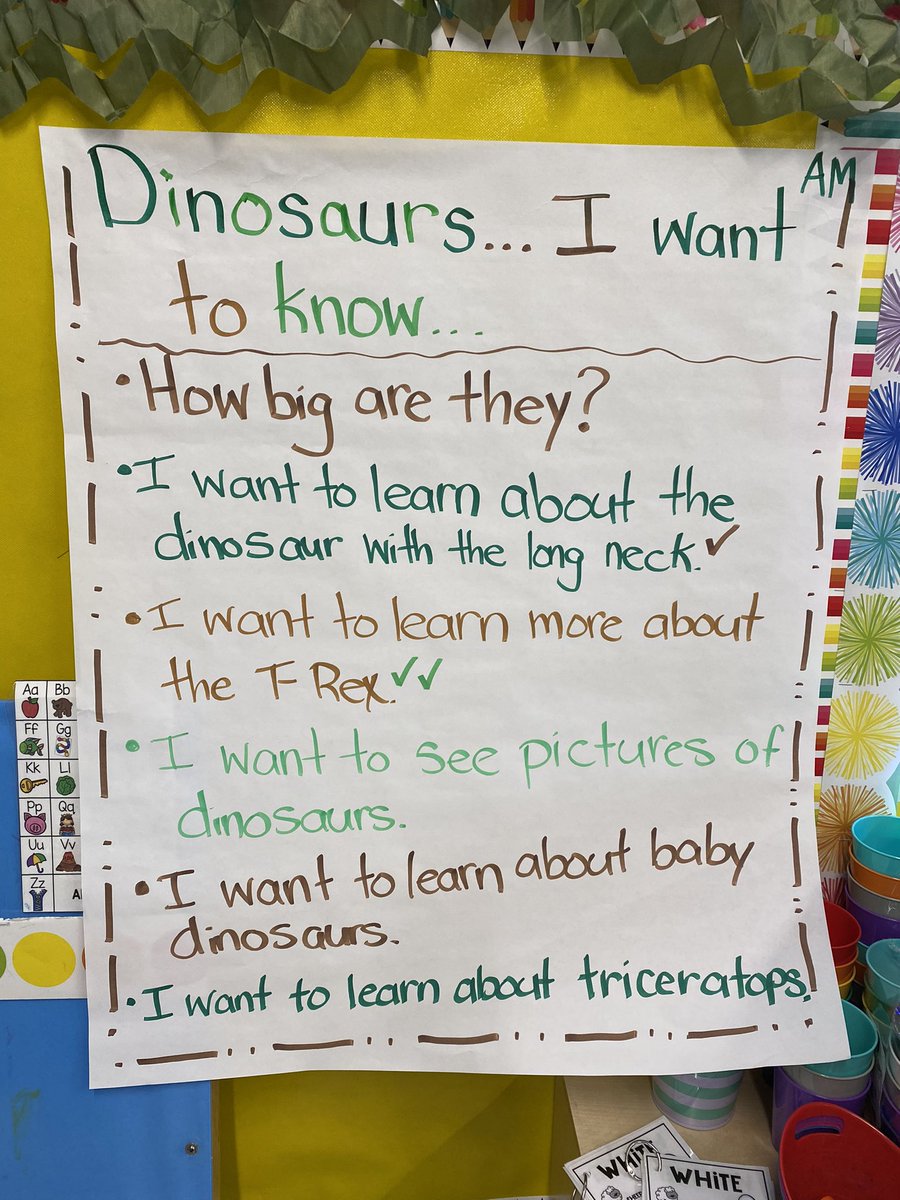 AM
Dinosaurs... I want
to know...
• How big are they?
• I want to learn about the
dinosaur with the long neck. ✓
• I want to learn more about
the T-Rex. ✓✓
• I want to see pictures of
dinosaurs.
• I want to learn about baby
dinosaurs.
• I want to learn about triceratops.
Aa Bb
Ff Gg
Kk Ll
Pp Qq
Uu Vv
Zz
WHITE
WHITE